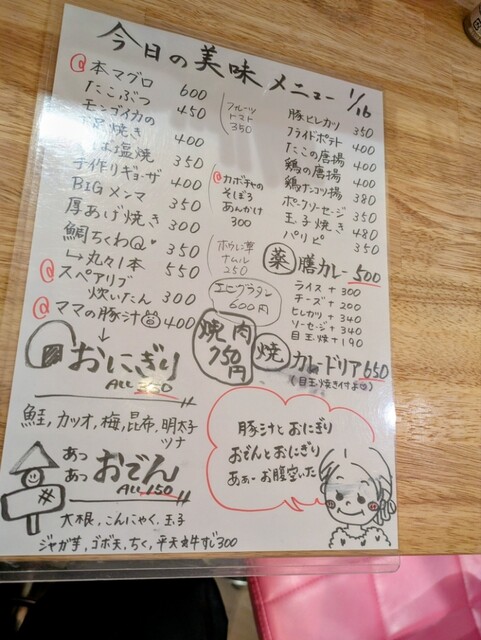 今日の美味メニュー 1/16
@本マグロ 600
たこぶつ 450
モンゴイカの
焼き 400
塩焼 350
手作りギョーザ 400
BIGメンマ 350
厚あげ焼き 300
鯛ちくわ 350
↳丸々1本 550
@スペアリブ
炊いたん 300
@ママの豚汁 400
フルーツ
トマト
350
@カボチャの
そぼろ
あんかけ
300
ホウレン草
ナムル
250
エビグラタン
600円
焼肉
750円
豚ヒレカツ 350
フライドポテト 400
たこの唐揚 400
鶏の唐揚 400
鶏ナンコツ揚 380
ポークソーセージ 350
玉子焼き 480
パリピ 350
薬膳カレー 500
ライス +300
チーズ +200
ヒレカツ +340
ソーセージ +340
目玉焼 +190
焼カレードリア 650
(目玉焼き付よ)
おにぎり
ALL
鮭,カツオ,梅,昆布,明太子
ツナ
あっ
あっ
おでん
ALL 150
大根,こんにゃく,玉子
ジャガ芋,ゴボ天,ちく,平天,牛すじ300
豚汁とおにぎり
おでんとおにぎり
あぁーお腹空いた